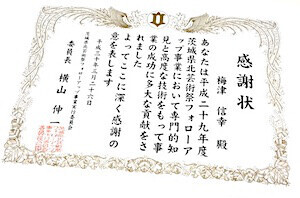 感謝状
梅津 信幸 殿
あなたは平成二十九年度
茨城県北芸術祭フォローア
ップ事業において専門的知
見と高度な技術をもって事
業の成功に多大な貢献をさ
れました
よってここに深く感謝の
意を表します
平成三十年三月二十六日
茨城県北芸術祭フォローアップ事業実行委員会
委員長 横山 伸一